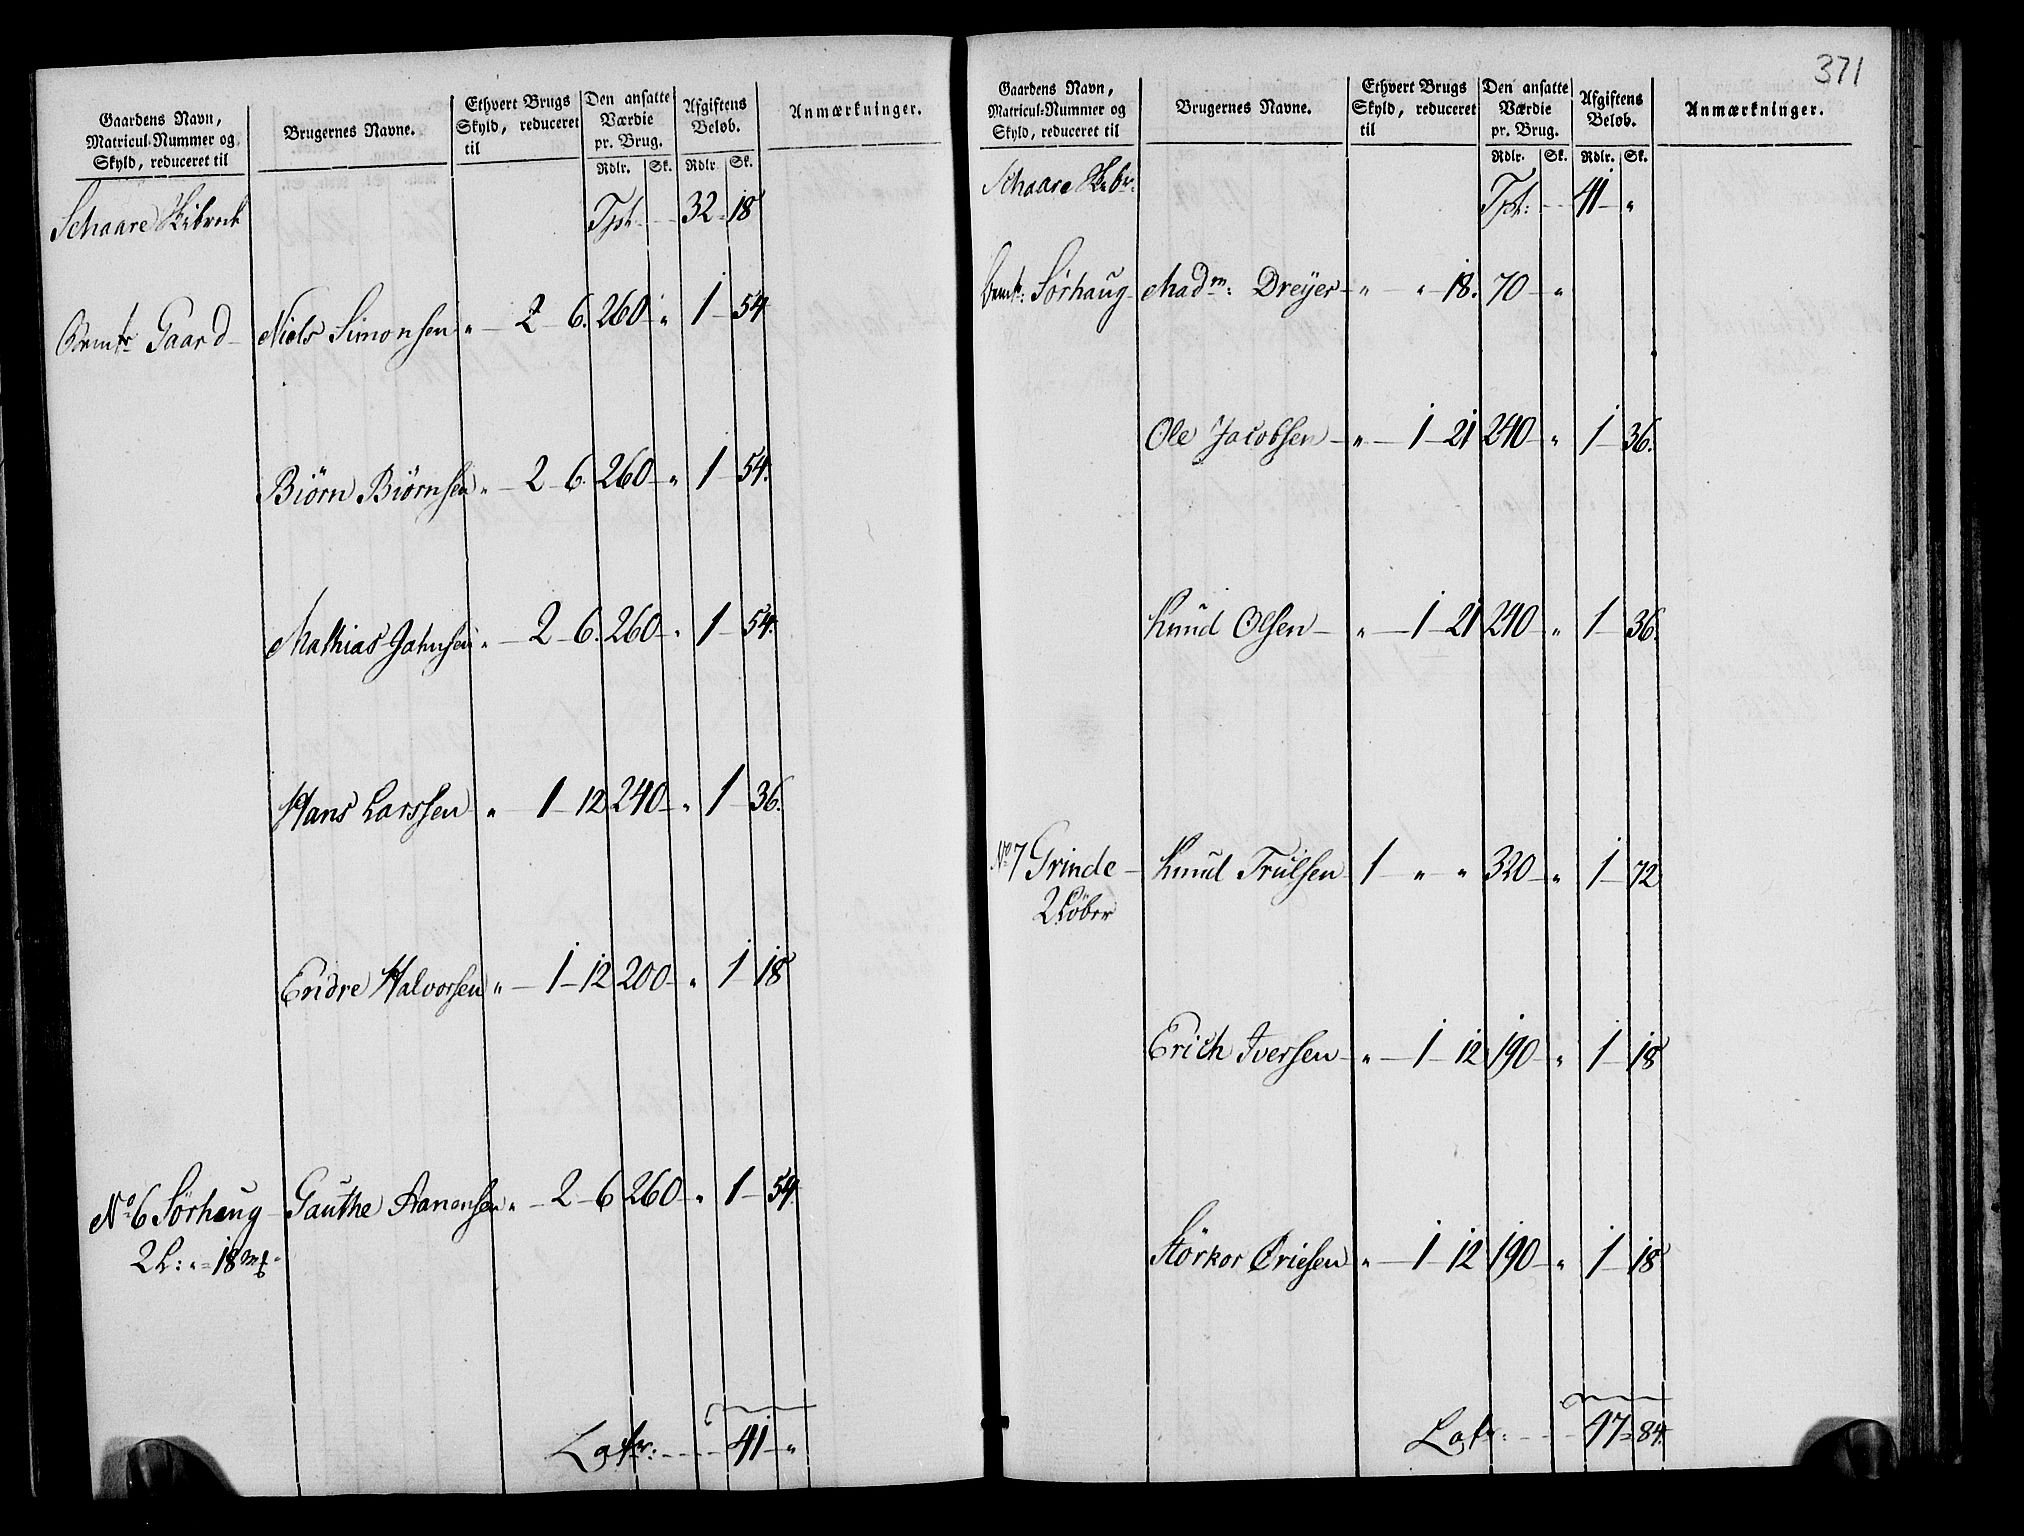 Gaardens Navn,
Matricul-Nummer og
Skyld, reduceret til
Brugernes Navne.
Ethvert Brugs
Skyld, reduceret
til
Den ansatte
Værdie
pr. Brug.
Rdlr. Sk.
Afgiftens
Beløb.
Rdlr. Sk.
Anmærkninger.
Schaare Skibrede Tpt: 32 18
Gaard Niels Simonsen " 2 6. 260 " 1 54
Biørn Biørnsen " 2 6. 260 " 1 54.
Mathias Jahnsen " 2 6. 260 " 1 54.
Hans Larssen " 1 12 240 " 1 36.
Endre Halvorsen " 1 12 200 " 1 18
No 6 Sørhaug Gauthe Aanensen " 2 6 260 " 1 54.
2 L: " 18 mk
Latr: 41 "
371
Gaardens Navn,
Matricul-Nummer og
Skyld, reduceret til
Brugernes Navne.
Ethvert Brugs
Skyld, reduceret
til
Den ansatte
Værdie
pr. Brug.
Rdlr. Sk.
Afgiftens
Beløb.
Rdlr. Sk.
Anmærkninger.
Schaare Skbr: Tpt: 41 "
Sørhaug Madm: Dreyer " " 18. 70 "
Ole Jacobsen " 1 21 240 " 1 36.
Knud Olsen " 1 21 240 " 1 36.
No 7 Grinde Knud Trulsen 1 " " 320 " 1 72
2 Løber
Erich Iversen " 1 12 190 " 1 18
Störkor Eriesen " 1 12 190 " 1 18
Latr: 47 84.